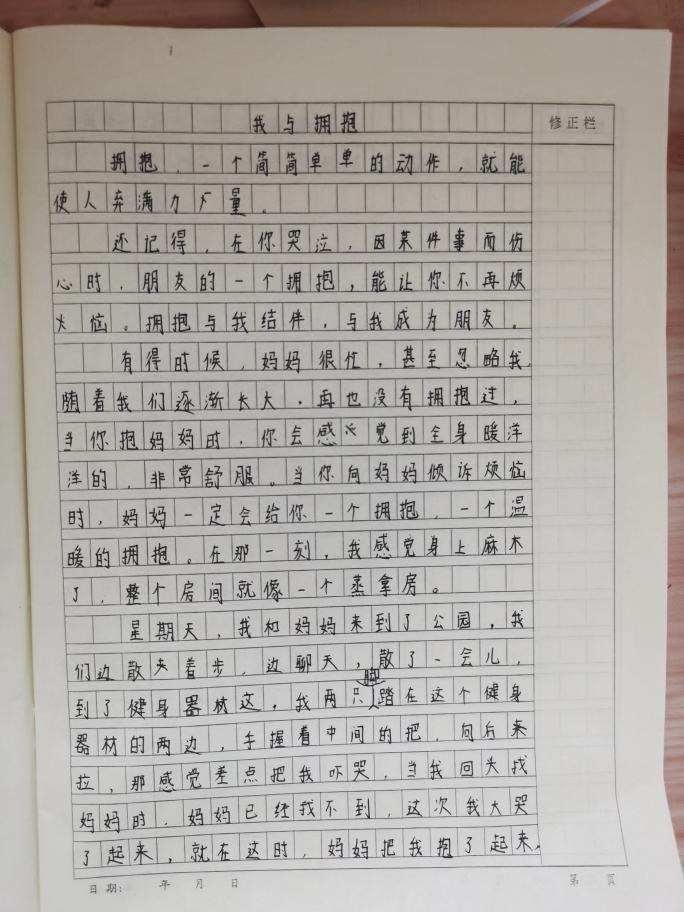 我与拥抱
修正栏
拥抱，一个简简单单的动作，就能
使人充满力量。
还记得，在你哭泣，因某件事而伤
心时，朋友的一个拥抱，能让你不再烦
恼。拥抱与我结伴，与我成为朋友。
有得时候，妈妈很忙，甚至忽略我，
随着我们逐渐长大，再也没有拥抱过，
当你抱妈妈时，你会感觉到全身暖洋
洋的，非常舒服。当你向妈妈倾诉烦恼
时，妈妈一定会给你一个拥抱，一个温
暖的拥抱。在那一刻，我感觉身上麻木
了，整个房间就像一个蒸拿房。
星期天，我和妈妈来到了公园，我
们边散着步，边聊天，散了一会儿，
到了健身器材这，我两只脚踏在这个健身
器材的两边，手握着中间的把，向后来
拉，那感觉差点把我吓哭，当我回头找
妈妈时，妈妈已经找不到，这次我大哭
了起来，就在这时，妈妈把我抱了起来，
日期： 年 月 日 第 页